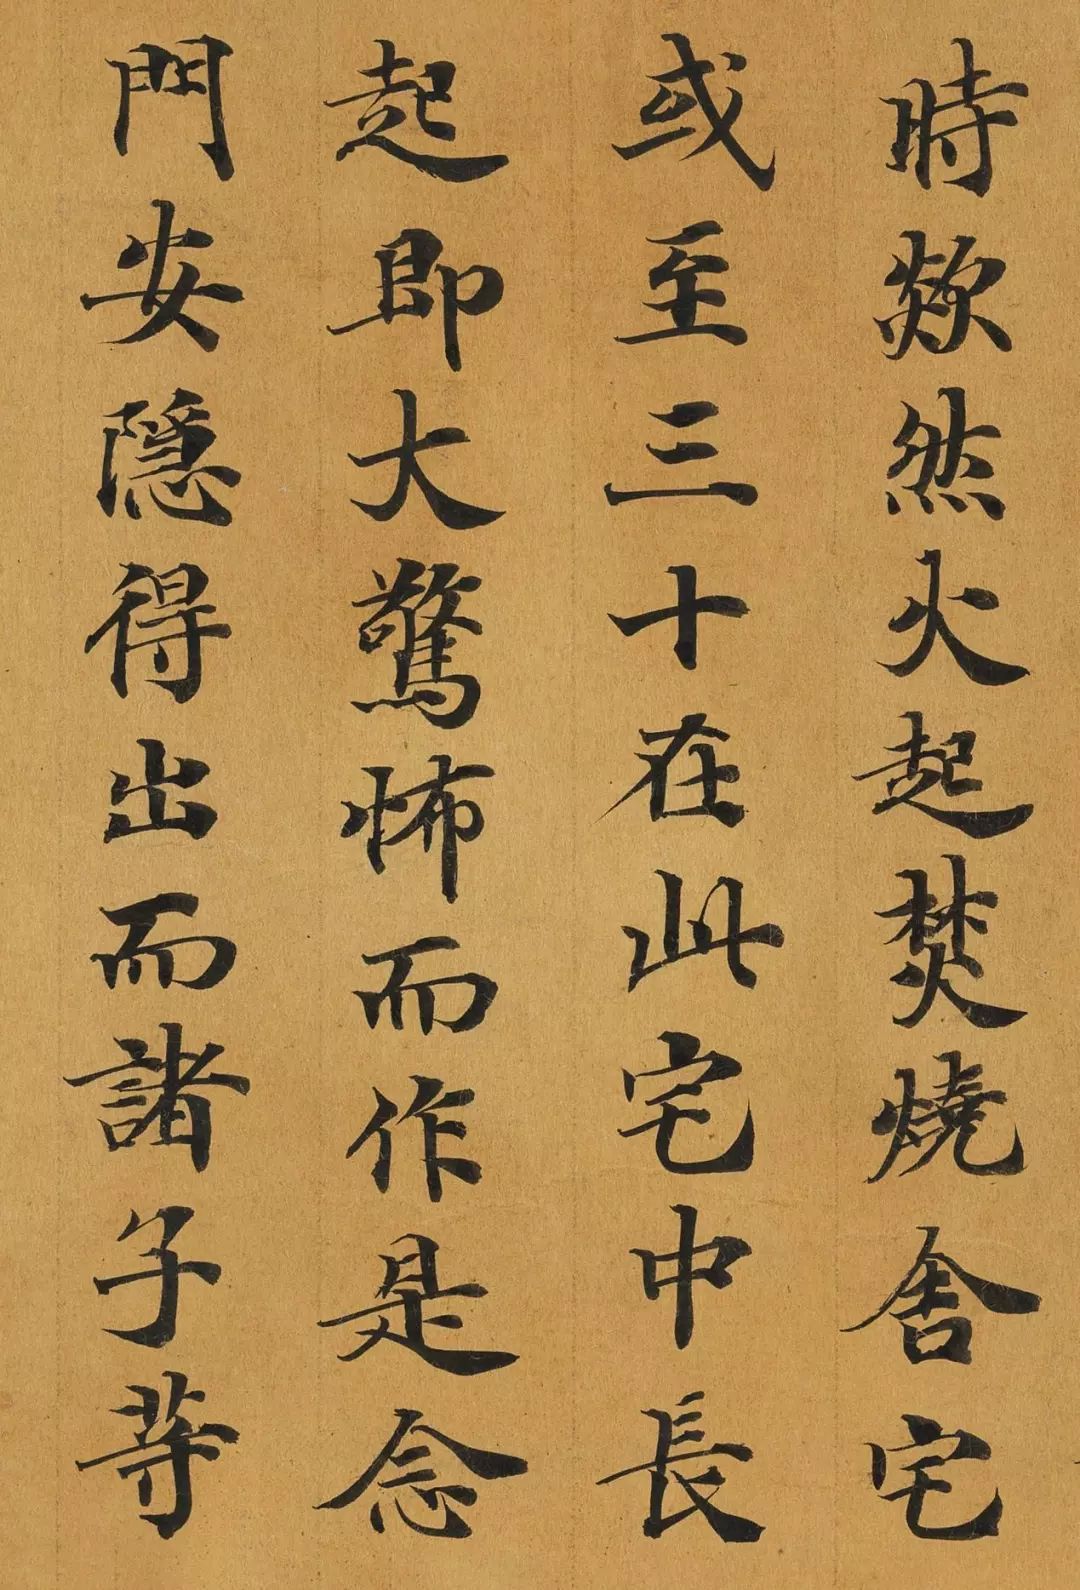 時欻然火起焚燒舍宅
或至三十在此宅中長
起即大驚怖而作是念
門安隱得出而諸子等